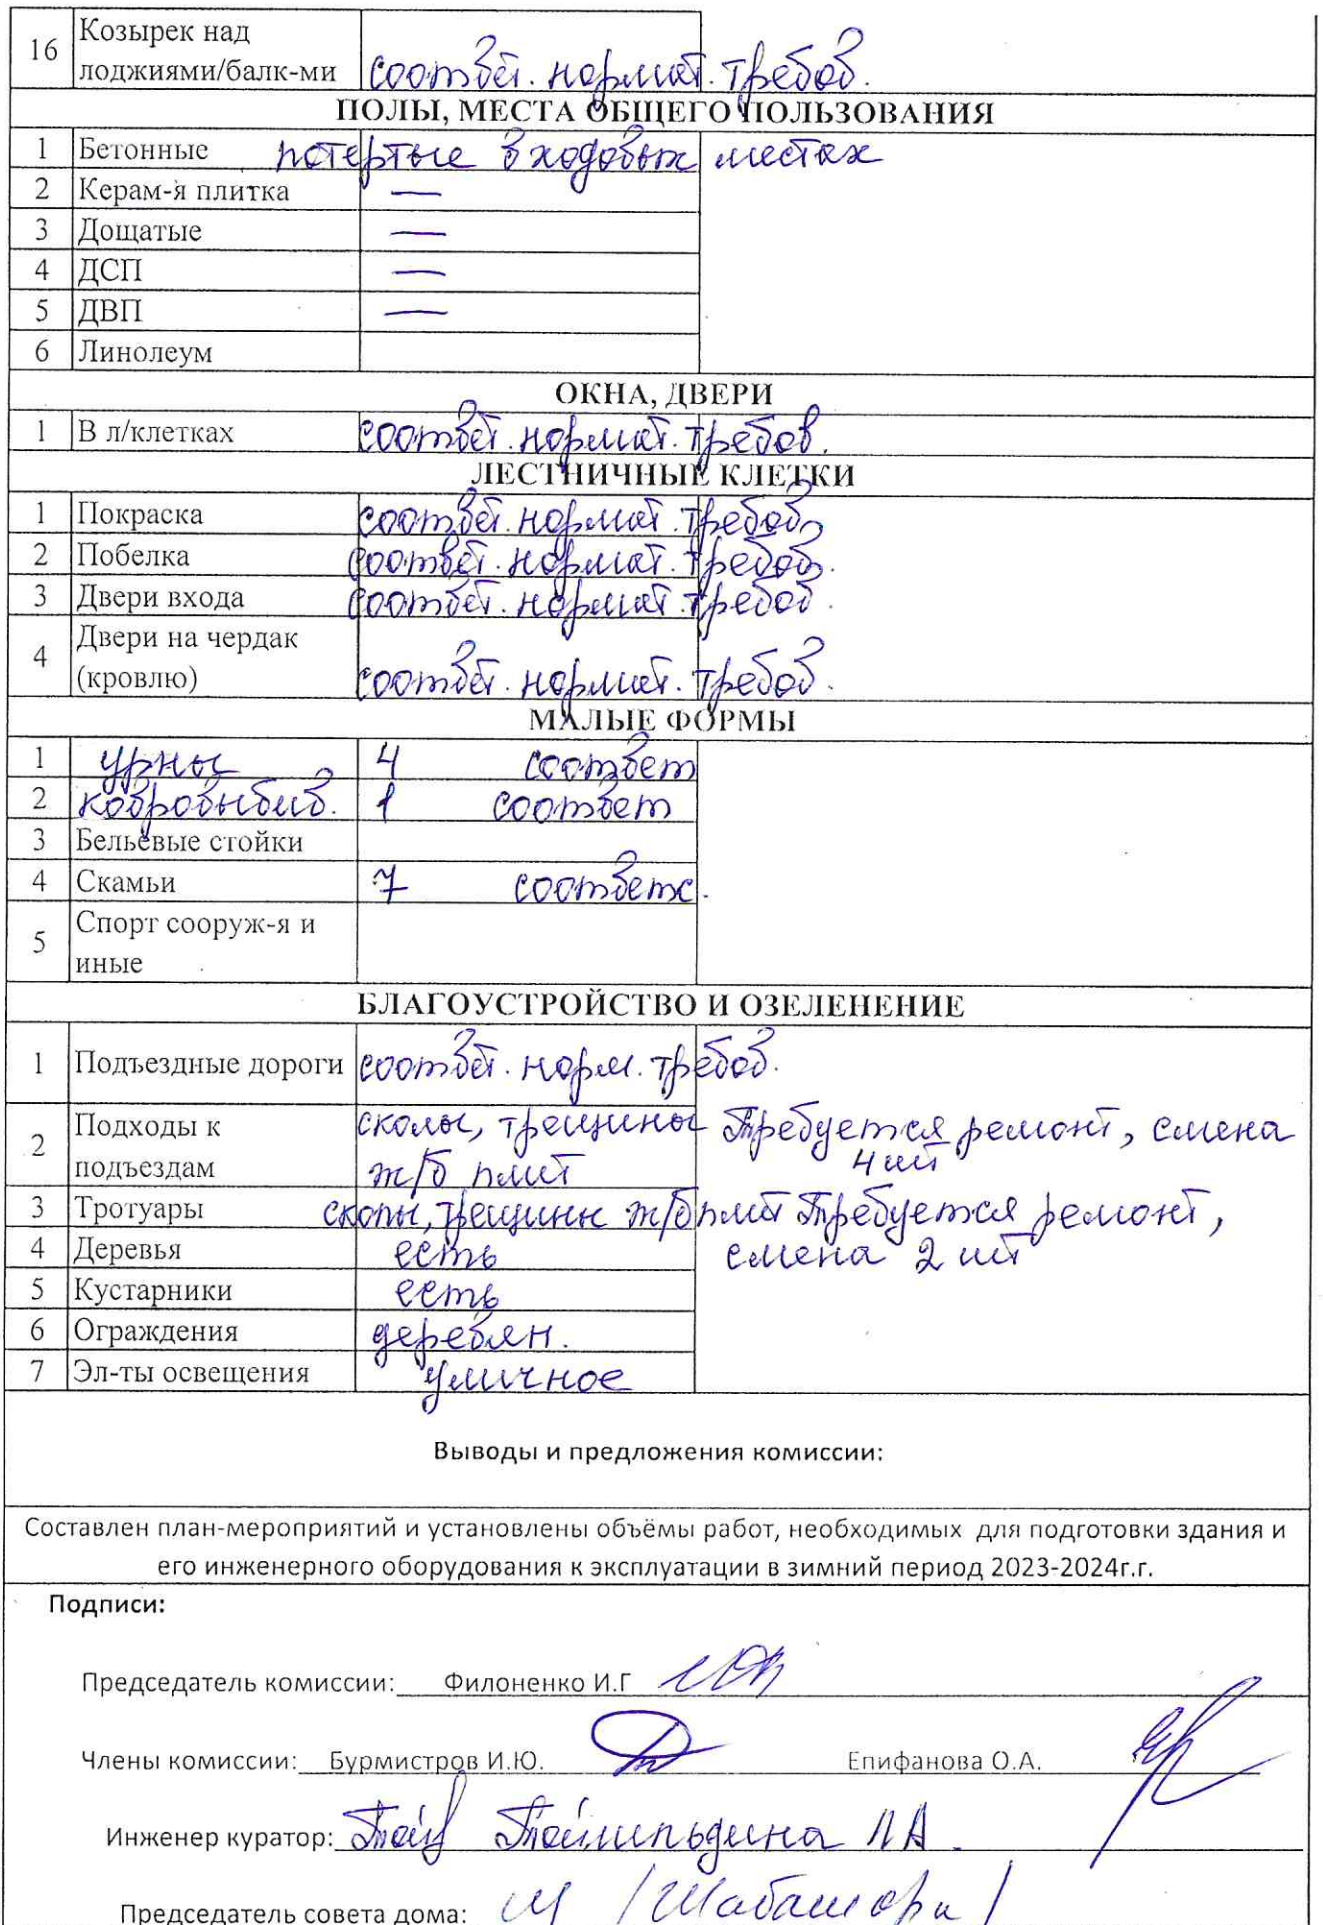 16 Козырек над
лоджиями/балк-ми соответ. нормат. требов.
ПОЛЫ, МЕСТА ОБЩЕГО ПОЛЬЗОВАНИЯ
1 Бетонные потертые в ходовых местах
2 Керам-я плитка —
3 Дощатые —
4 ДСП —
5 ДВП —
6 Линолеум
ОКНА, ДВЕРИ
1 В л/клетках соответ. нормат. требов.
ЛЕСТНИЧНЫЕ КЛЕТКИ
1 Покраска соответ. нормат. требов.
2 Побелка соответ. нормат. требов.
3 Двери входа соответ. нормат. требов.
4 Двери на чердак
(кровлю) соответ. нормат. требов.
МАЛЫЕ ФОРМЫ
1 урны 4 соответ
2 ковровыбив. 1 соответ
3 Бельевые стойки
4 Скамьи 7 соответс.
5 Спорт сооруж-я и
иные
БЛАГОУСТРОЙСТВО И ОЗЕЛЕНЕНИЕ
1 Подъездные дороги соответ. норм. требов.
2 Подходы к подъездам сколы, трещины ж/б плит Требуется ремонт, смена 4 шт
3 Тротуары сколы, трещины ж/б плит Требуется ремонт,
4 Деревья есть смена 2 шт
5 Кустарники есть
6 Ограждения деревян.
7 Эл-ты освещения уличное
Выводы и предложения комиссии:
Составлен план-мероприятий и установлены объёмы работ, необходимых для подготовки здания и
его инженерного оборудования к эксплуатации в зимний период 2023-2024г.г.
Подписи:
Председатель комиссии: Филоненко И.Г
Члены комиссии: Бурмистров И.Ю. Епифанова О.А.
Инженер куратор:
Председатель совета дома: